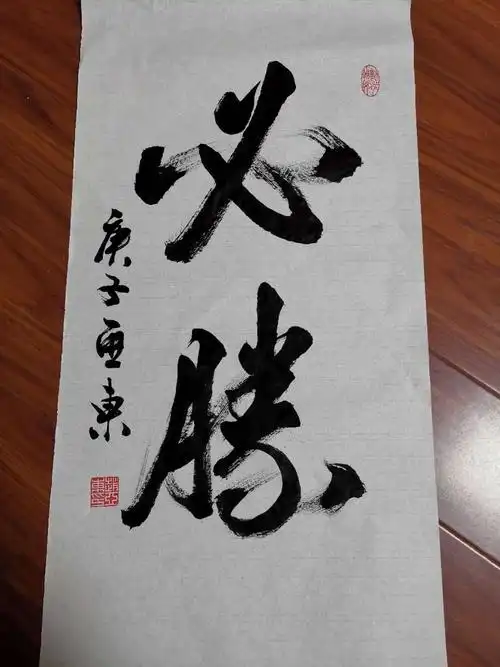 必勝
庚子亚東